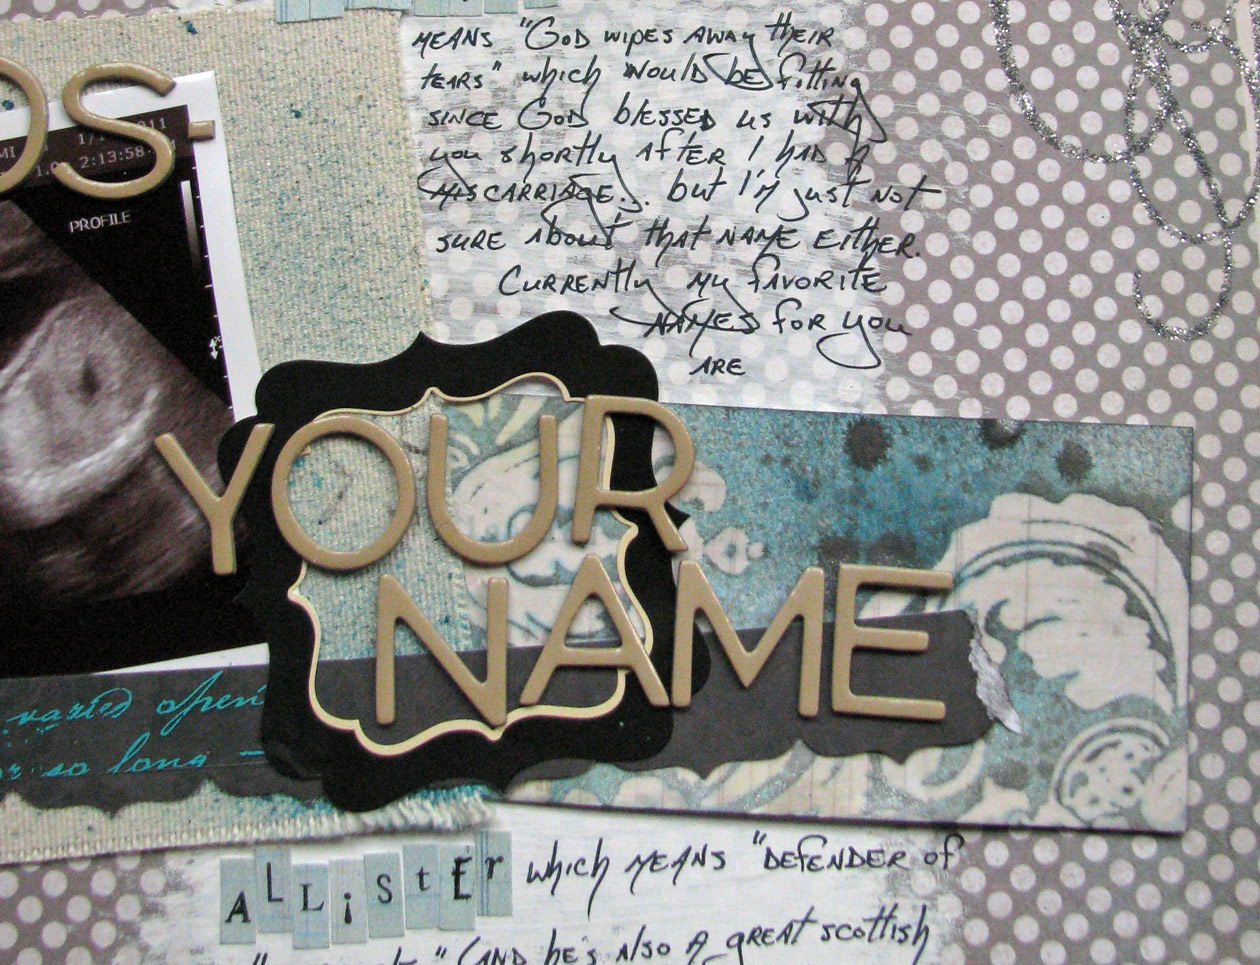 MEANS "GOD WIPES AWAY THEIR
TEARS" which would be fitting
SINCE GOD blESSED us with
you shortly AFTER I HAD A
MISCARRIAGE.. but I'M just not
SURE About that NAME EithER.
CURRENtly my fAVORITE
NAMES for you
ARE
OS-
2011
2:13:58
PROFILE
YOUR
NAME
varied open
so long —
ALLiStEr which MEANS "DEFENDER of
" (AND he's Also A great scottish